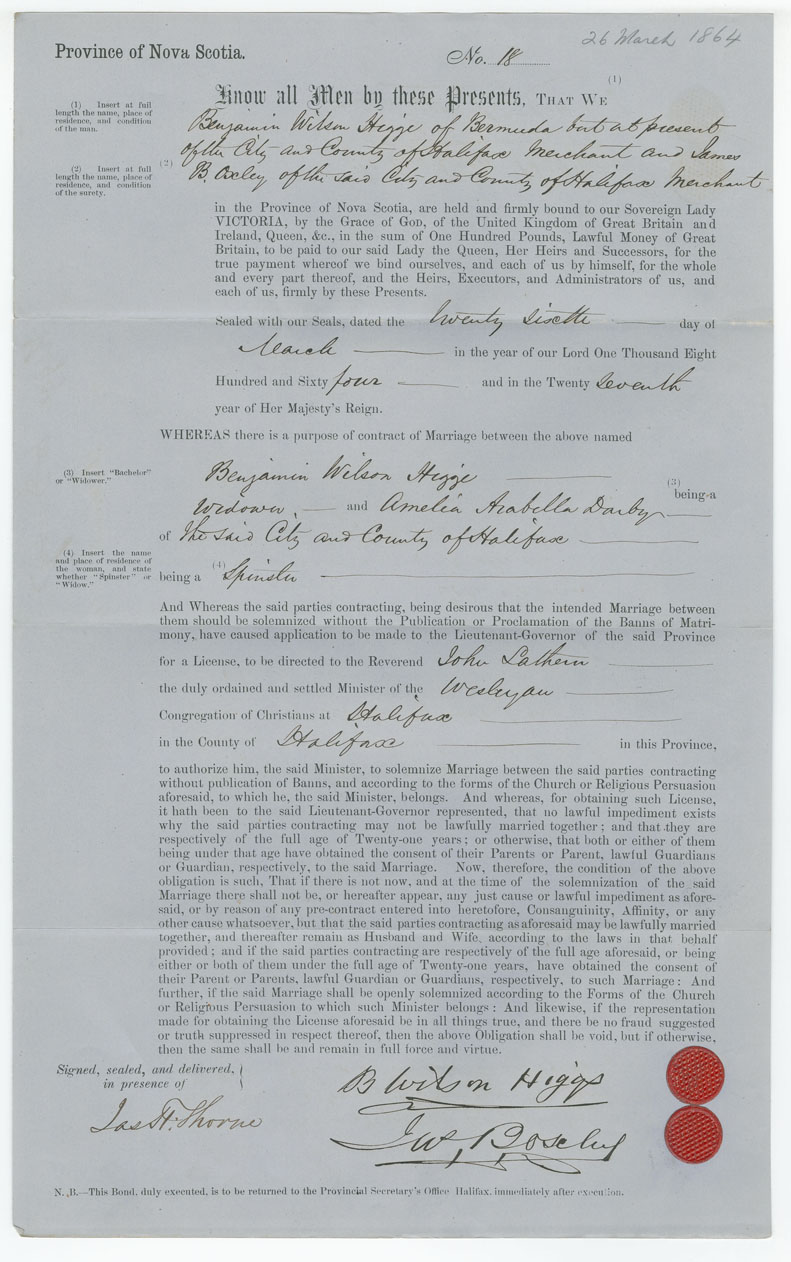 26 March 1864
Province of Nova Scotia.
No. 18
(1)
Know all Men by these Presents, THAT WE
(1) Insert at full
length the name, place of
residence, and condition
of the man.
Benjamin Wilson Higgs of Bermuda but at present
of the City and County of Halifax Merchant and James
(2)
B. Oxley of the said City and County of Halifax Merchant
(2) Insert at full
length the name, place of
residence, and condition
of the surety.
in the Province of Nova Scotia, are held and firmly bound to our Sovereign Lady
VICTORIA, by the Grace of GOD, of the United Kingdom of Great Britain and
Ireland, Queen, &c., in the sum of One Hundred Pounds, Lawful Money of Great
Britain, to be paid to our said Lady the Queen, Her Heirs and Successors, for the
true payment whereof we bind ourselves, and each of us by himself, for the whole
and every part thereof, and the Heirs, Executors, and Administrators of us, and
each of us, firmly by these Presents.
Sealed with our Seals, dated the twenty sixth day of
March in the year of our Lord One Thousand Eight
Hundred and Sixty four and in the Twenty seventh
year of Her Majesty's Reign.
WHEREAS there is a purpose of contract of Marriage between the above named
(3) Insert "Bachelor"
or "Widower."
Benjamin Wilson Higgs
(3)
being a
Widower, and Amelia Arabella Darby
of the said City and County of Halifax
(4) Insert the name
and place of residence of
the woman, and state
whether "Spinster" or
"Widow."
(4)
being a Spinster
And Whereas the said parties contracting, being desirous that the intended Marriage between
them should be solemnized without the Publication or Proclamation of the Banns of Matri-
mony, have caused application to be made to the Lieutenant-Governor of the said Province
for a License, to be directed to the Reverend John Lathern
the duly ordained and settled Minister of the Wesleyan
Congregation of Christians at Halifax
in the County of Halifax in this Province,
to authorize him, the said Minister, to solemnize Marriage between the said parties contracting
without publication of Banns, and according to the forms of the Church or Religious Persuasion
aforesaid, to which he, the said Minister, belongs. And whereas, for obtaining such License,
it hath been to the said Lieutenant-Governor represented, that no lawful impediment exists
why the said parties contracting may not be lawfully married together; and that they are
respectively of the full age of Twenty-one years; or otherwise, that both or either of them
being under that age have obtained the consent of their Parents or Parent, lawful Guardians
or Guardian, respectively, to the said Marriage. Now, therefore, the condition of the above
obligation is such, That if there is not now, and at the time of the solemnization of the said
Marriage there shall not be, or hereafter appear, any just cause or lawful impediment as afore-
said, or by reason of any pre-contract entered into heretofore, Consanguinity, Affinity, or any
other cause whatsoever, but that the said parties contracting as aforesaid may be lawfully married
together, and thereafter remain as Husband and Wife, according to the laws in that behalf
provided; and if the said parties contracting are respectively of the full age aforesaid, or being
either or both of them under the full age of Twenty-one years, have obtained the consent of
their Parent or Parents, lawful Guardian or Guardians, respectively, to such Marriage: And
further, if the said Marriage shall be openly solemnized according to the Forms of the Church
or Religious Persuasion to which such Minister belongs: And likewise, if the representation
made for obtaining the License aforesaid be in all things true, and there be no fraud suggested
or truth suppressed in respect thereof, then the above Obligation shall be void, but if otherwise,
then the same shall be and remain in full force and virtue.
Signed, sealed, and delivered,
in presence of
B Wilson Higgs
Jas H. Thorne
Jas. B. Oxley
N. B.—This Bond, duly executed, is to be returned to the Provincial Secretary's Office Halifax, immediately after execution.